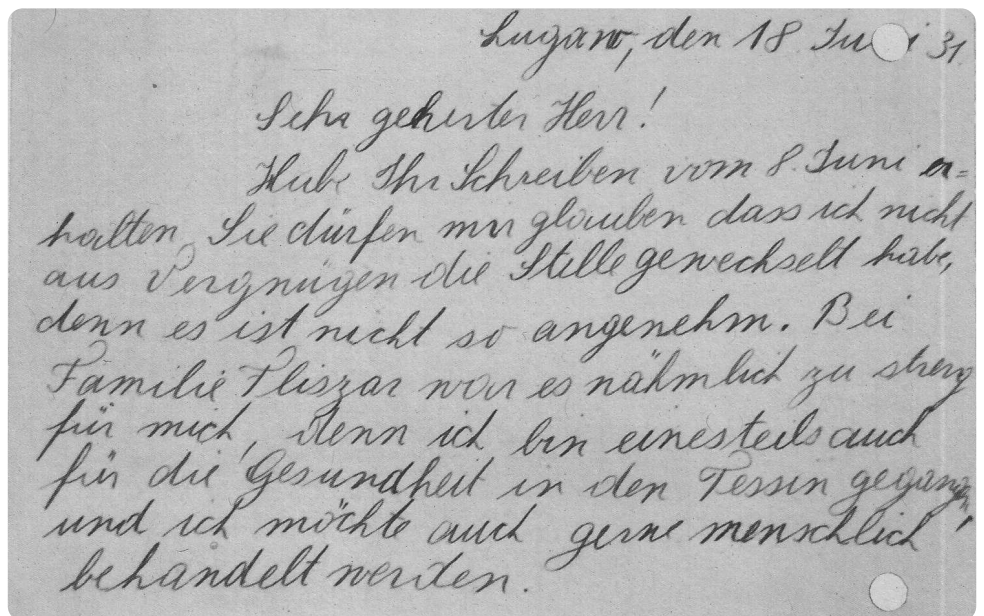 Lugano, den 18 Juni 31.
Sehr geehrter Herr!
Habe Ihr Schreiben vom 8. Juni er=
halten, Sie dürfen mir glauben dass ich nicht
aus Vergnügen die Stelle gewechselt habe,
denn es ist nicht so angenehm. Bei
Familie Fliszar war es nähmlich zu streng
für mich, denn ich bin einesteils auch
für die Gesundheit in den Tessin gegangen,
und ich möchte auch gerne menschlich
behandelt werden.